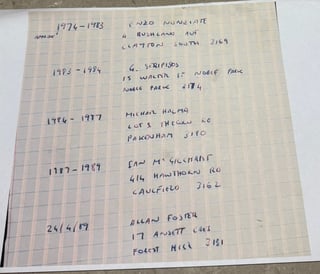 1974-1983 ENZO NUNZIATE
4 BUSHLAND AVE
CLAYTON SOUTH 3169
1983-1984 G.
15 WALTER ST NOBLE PARK
NOBLE PARK 3174
1984-1987 MICHAEL HALMA
LOT 5
PAKENHAM 3810
1987-1989 IAN McGILCHRIST
414 HAWTHORN RD
CAULFIELD 3162
24/4/89 ALLAN FOSTER
17 ANSETT CRES
FOREST HILL 3131